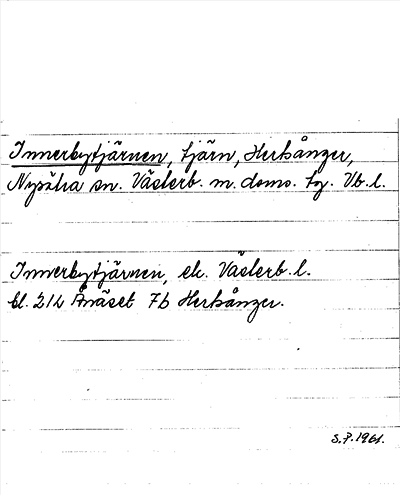 Innerbytjärnen, tjärn, Herkånger,
Nysätra sn. Västerb. m. doms. tg. Vb. l.
Innerbytjärnen, ek. Västerb. l.
bl. 212 Ånäset 7b Herkånger.
S.P. 1961.